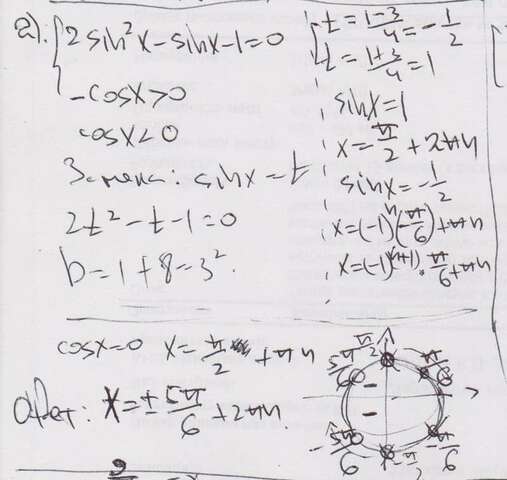 а). { 2 sin²x − sinx − 1 = 0
−cosx > 0
cosx < 0
Замена: sinx = t
2t² − t − 1 = 0
D = 1 + 8 = 3².
t = 1−3/4 = −1/2
t = 1+3/4 = 1
sinx = 1
x = π/2 + 2πn
sinx = −1/2
x = (−1)ⁿ(−π/6) + πn
x = (−1)⁽ⁿ⁺¹⁾ · π/6 + πn
cosx = 0 x = π/2 + πn
Ответ: x = ± 5π/6 + 2πn
π/2
5π/6
π/6
− −
−5π/6
−π/6
−π/2